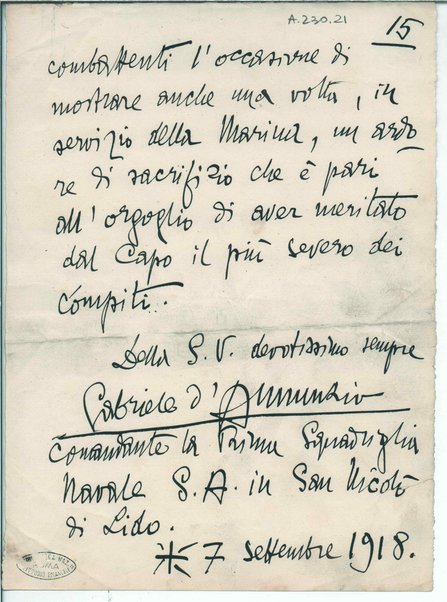 A.230.21
15
combattenti l'occasione di
mostrare anche una volta, in
servizio della Marina, un ardo
re di sacrifizio che è pari
all'orgoglio di aver meritato
dal Capo il più severo dei
compiti.
Della S.V. devotissimo sempre
Gabriele d'Annunzio
comandante la Prima Squadriglia
Navale S.A. in San Nicolò
di Lido.
7 settembre 1918.